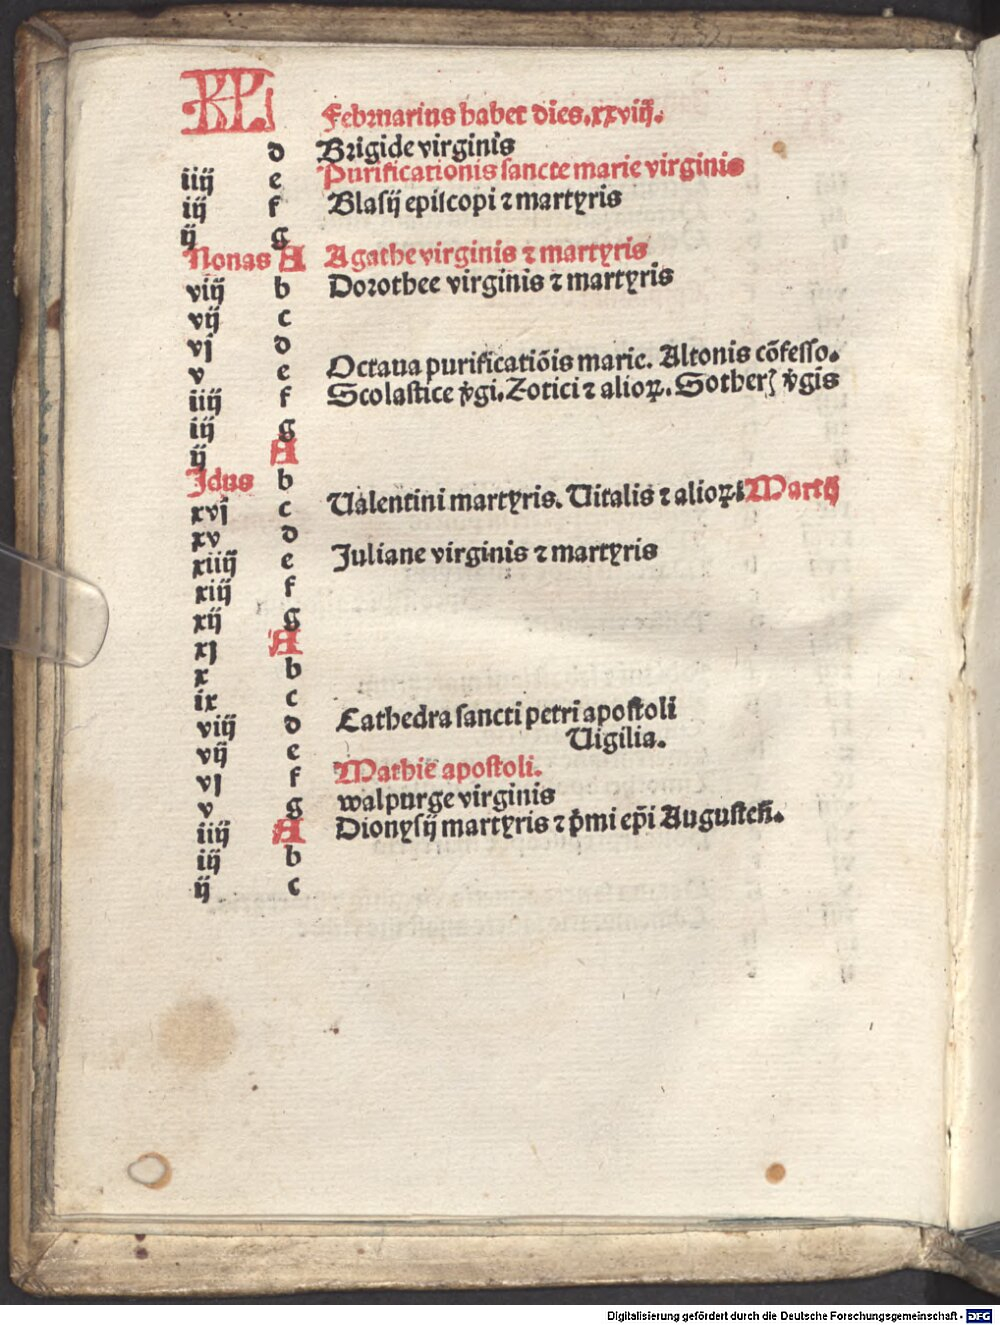 KL Februarius habet dies.xxviij.
d Brigide virginis
iiij e Purificationis sancte marie virginis
iij f Blasij episcopi ⁊ martyris
ij g
Nonas A Agathe virginis ⁊ martyris
viij b Dorothee virginis ⁊ martyris
vij c
vj d
v e Octaua purificatiõis marie. Altonis cõfesso.
iiij f Scolastice v̾gi. Zotici ⁊ alioꝝ. Sother⁊ v̾gis
iij g
ij A
Idus b
xvj c Ualentini martyris. Uitalis ⁊ alioꝝ. Martij
xv d
xiiij e Juliane virginis ⁊ martyris
xiij f
xij g
xj A
x b
ix c
viij d Cathedra sancti petri apostoli
vij e Uigilia.
vj f Mathie apostoli.
v g walpurge virginis
iiij A Dionysij martyris ⁊ p̃mi ep̃i Augusteñ.
iij b
ij c
Digitalisierung gefördert durch die Deutsche Forschungsgemeinschaft - DFG